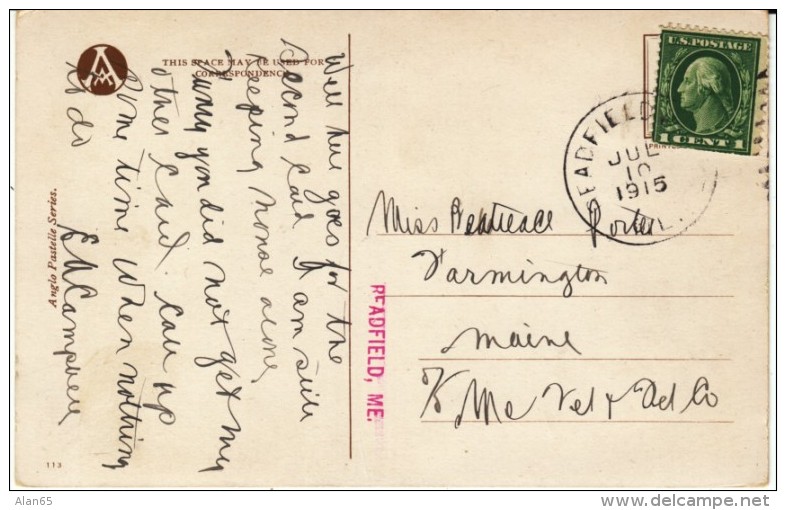 THIS SPACE MAY BE USED FOR
CORRESPONDENCE
Well here goes for the
second card I am still
keeping house alone
sorry you did not get my
other card. Call up
some time when nothing
to do
Anglo Pastelle Series.
113
U.S. POSTAGE
1 CENT 1
READFIELD
JUL
10
1915
Miss Porter
Farmington
Maine
c/o Me Tel & Tel Co
READFIELD, ME.
Alan65